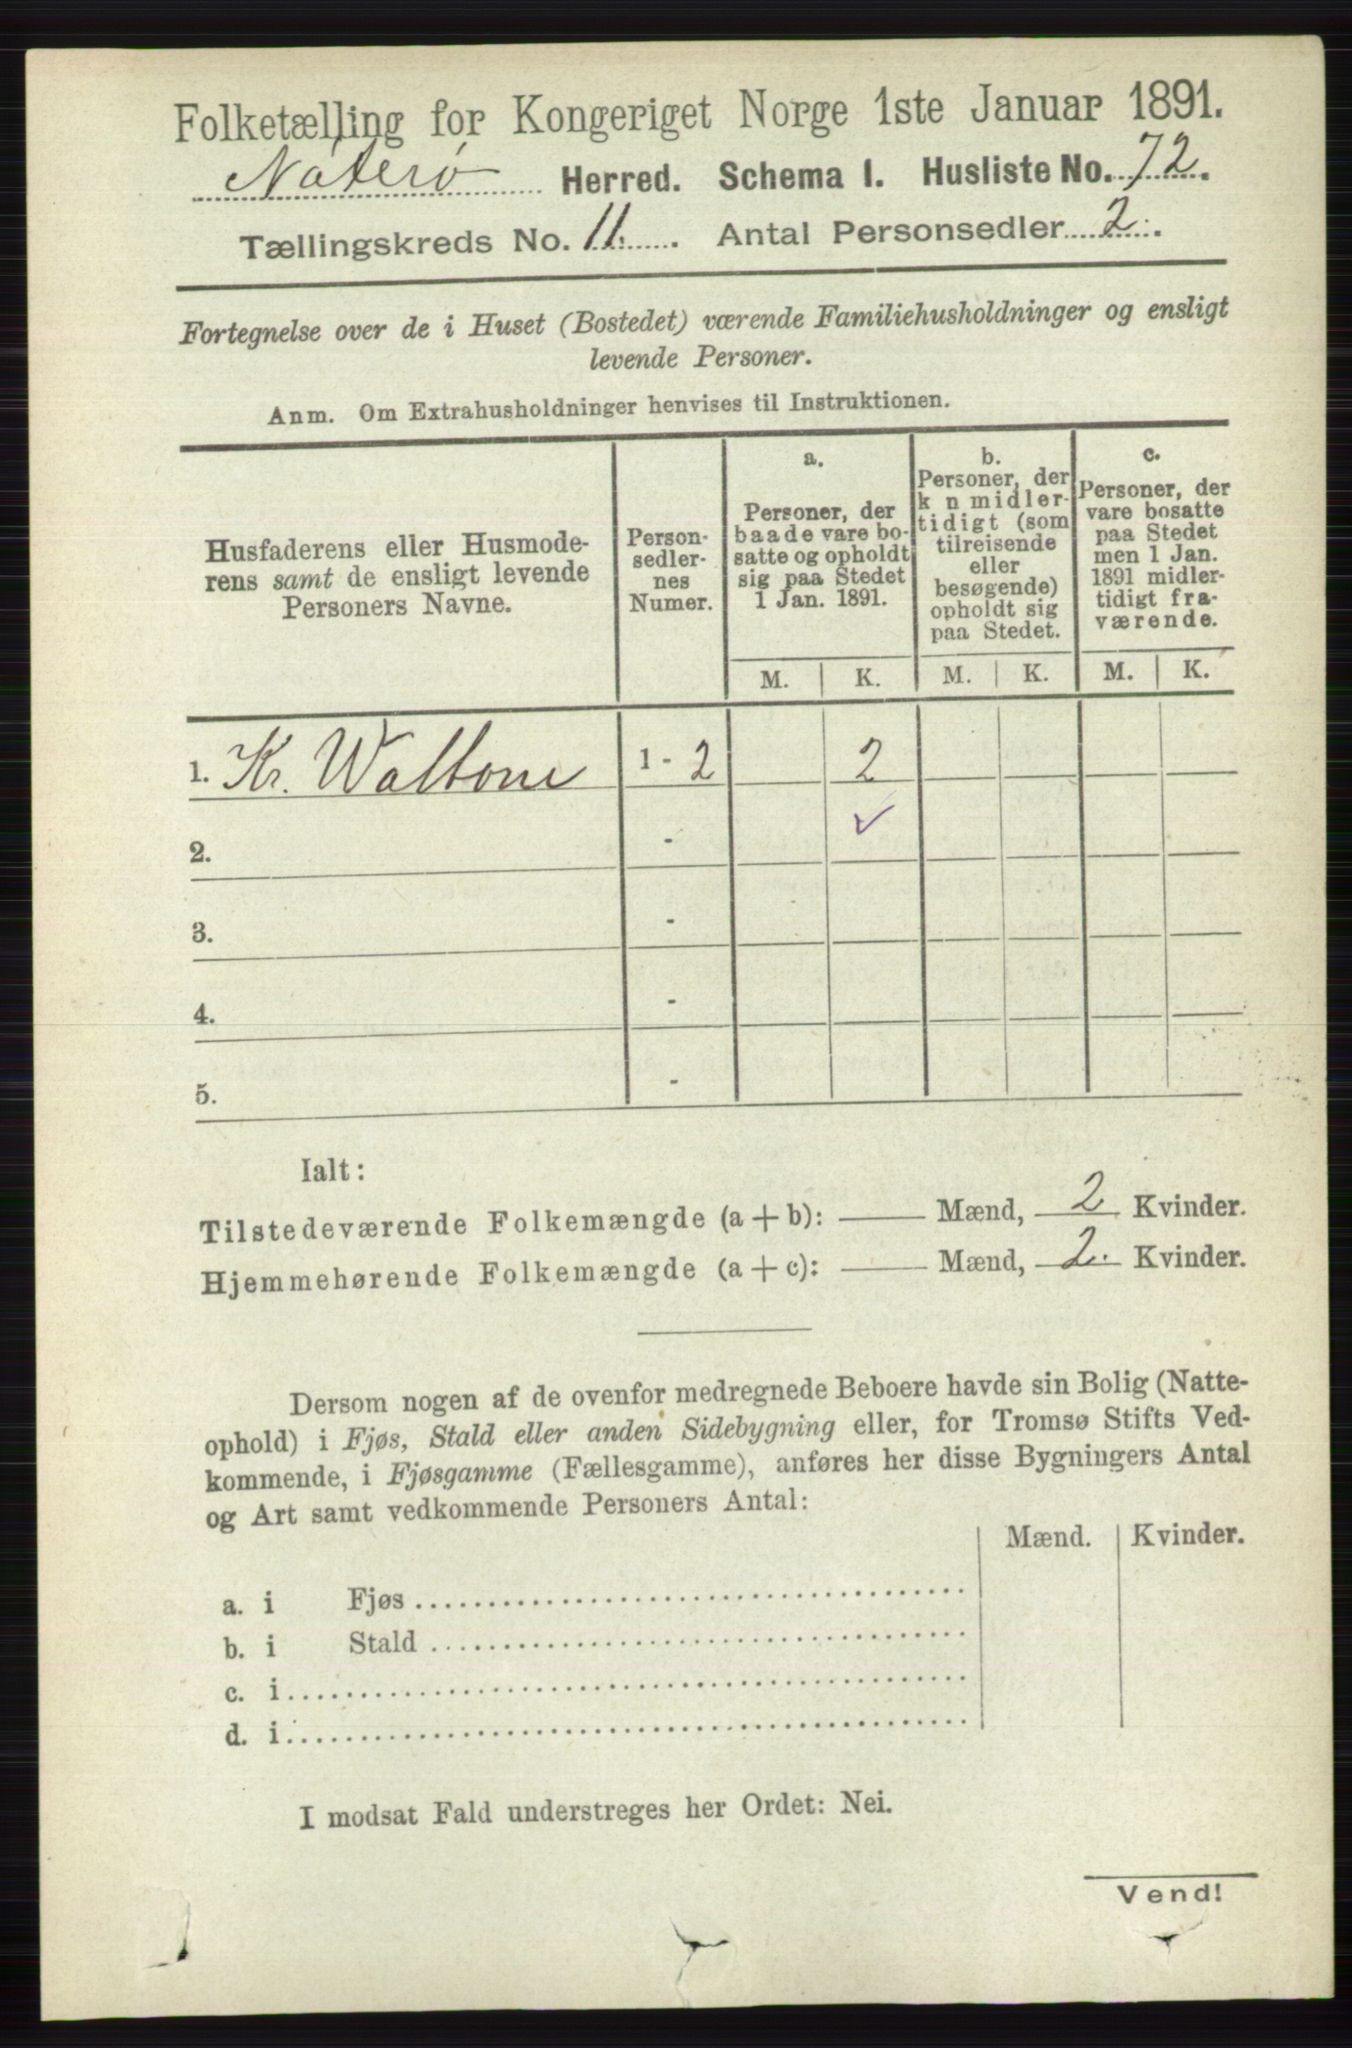 Folketælling for Kongeriget Norge 1ste Januar 1891.
Nøterø Herred. Schema 1. Husliste No. 72.
Tællingskreds No. 11. Antal Personsedler 2.
Fortegnelse over de i Huset (Bostedet) værende Familiehusholdninger og ensligt
levende Personer.
Anm. Om Extrahusholdninger henvises til Instruktionen.
Husfaderens eller Husmode-
rens samt de ensligt levende
Personers Navne.
Person-
sedler-
nes
Numer.
a.
Personer, der
baade vare bo-
satte og opholdt
sig paa Stedet
1 Jan. 1891.
b.
Personer, der
k n midler-
tidigt (som
tilreisende
eller
besøgende)
opholdt sig
paa Stedet.
c.
Personer, der
vare bosatte
paa Stedet
men 1 Jan.
1891 midler-
tidigt fra-
værende.
M. K. M. K. M. K.
1. Kr. 1 - 2 2
2. - ✓
3. -
4. -
5. -
Ialt:
Tilstedeværende Folkemængde (a + b): — Mænd, 2 Kvinder.
Hjemmehørende Folkemængde (a + c): — Mænd, 2. Kvinder.
Dersom nogen af de ovenfor medregnede Beboere havde sin Bolig (Natte-
ophold) i Fjøs, Stald eller anden Sidebygning eller, for Tromsø Stifts Ved-
kommende, i Fjøsgamme (Fællesgamme), anføres her disse Bygningers Antal
og Art samt vedkommende Personers Antal:
Mænd. Kvinder.
a. i Fjøs
b. i Stald
c. i
d. i
I modsat Fald understreges her Ordet: Nei.
Vend!